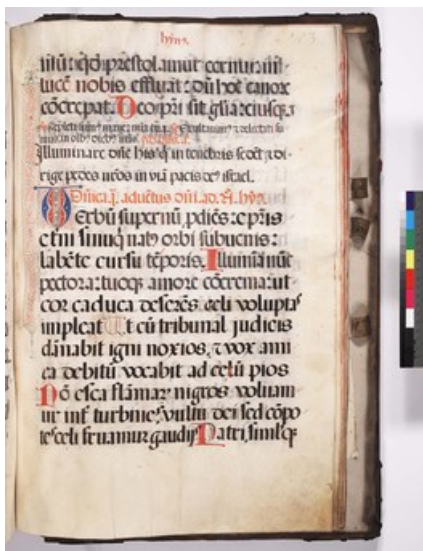 hỹns.
lucē nobis effluat: dū hoc canor
cōcrepat. Deo pri sit gloria eiusq; 
Illuminare dñe his q̃ in tenebris sedēt ⁊ di
rige pedes nros in viā pacis deꝰ israel.
Dñica aduētus dñi. ad hỹ.
Verbū supernū pdiens: e pris
etni sinu q̃ natꝰ orbi subuenis:
labēte cursu tēporis. Illumina nūc
pectora: tuoq; amore cōcrema: ut
cor caduca deserēs celi voluptaˢ
impleat Ut cū tribunal judicis
dānabit igni noxios, ⁊ vox ami
ca debitū vocabit ad celū pios
Nō esca flāmaꝝ nigros voluam
ur inf turbines vultu dei sed cōpo
tes celi fruamur gaudijs Patri, similq;